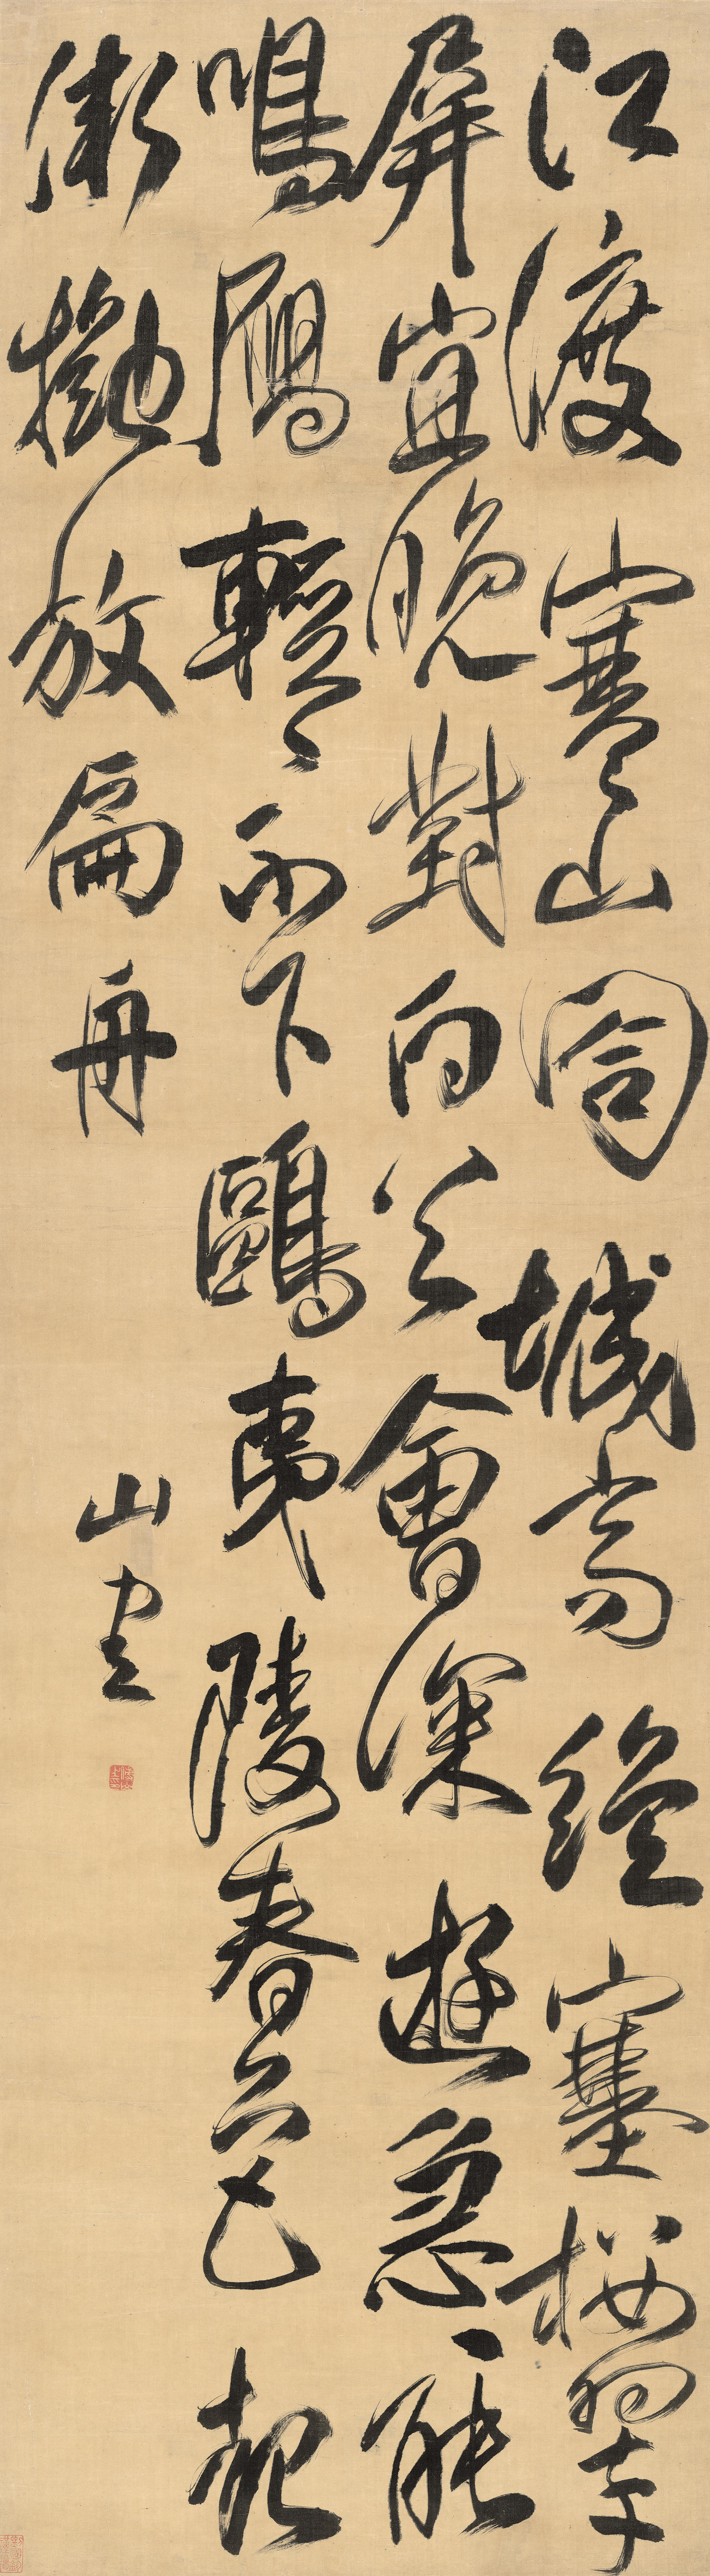 江渡寒山閣城高絕塞樓翠
屏宜晚對白谷會深遊急〻能
鳴鴈輕〻不下鷗夷陵春色起
漸擬放扁舟
山書